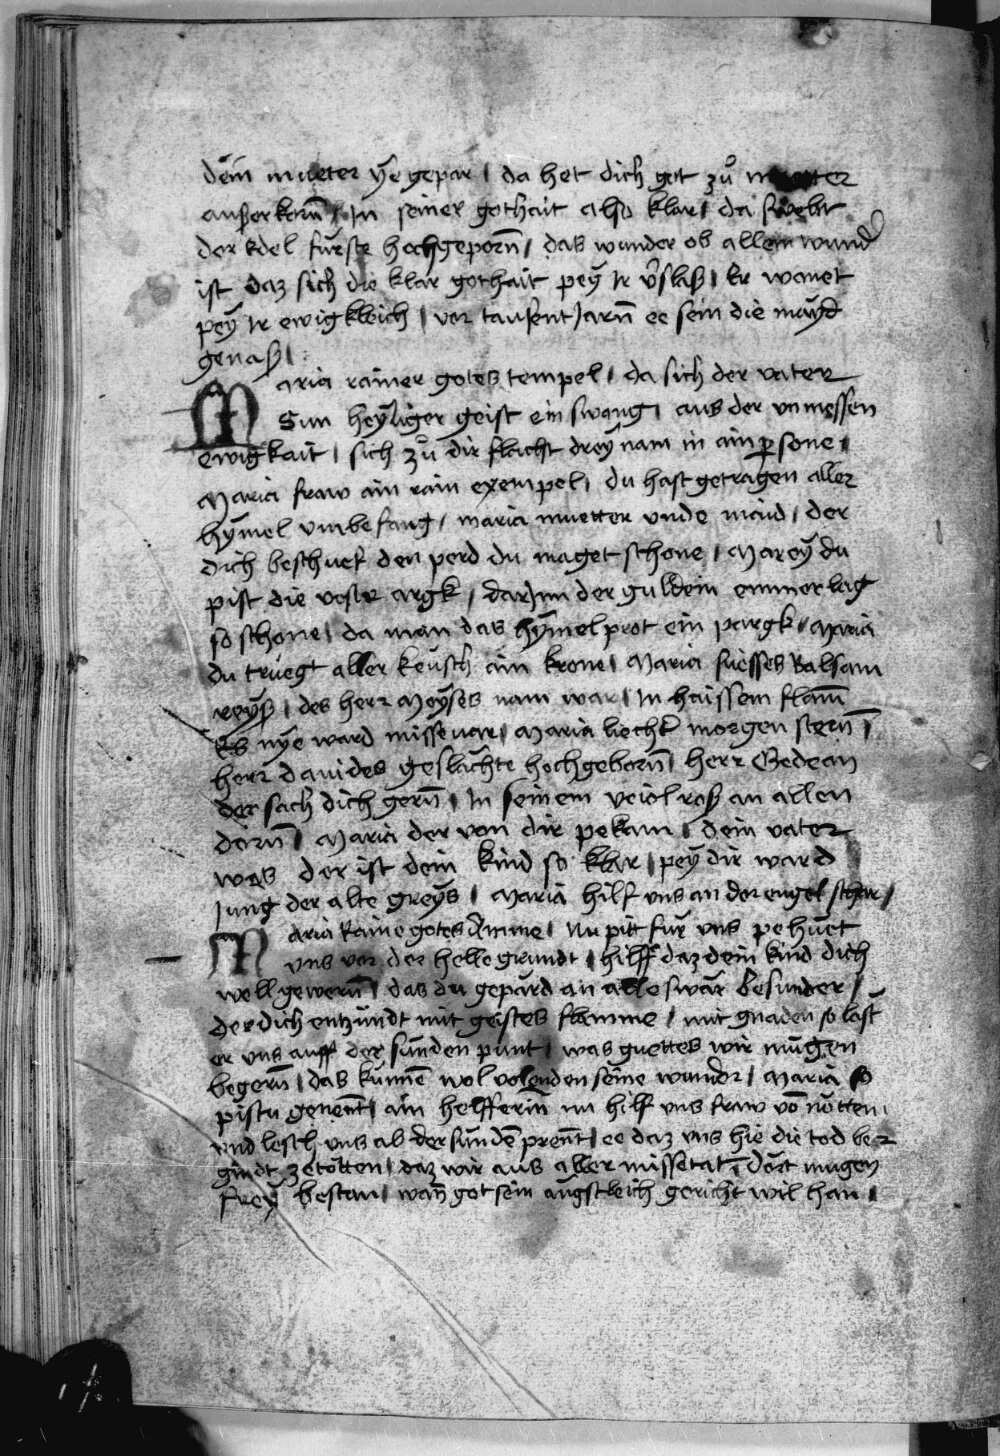 dein mueter ye gepar / da het dich got zů muetter
auserkorn̄ / In seiner gothait also klar / da swebt
der edel furste hochgeporn̄ / das wunder ob allem wund
ist daz sich die klar gothait pey Ir v̄slas / Er wonet
pey Ir ewigkleich / vor tausent Jarn̄ ee sein die mayd
genas /
Maria rainer gotes tempel / da sich der vater
Sun heyliger geist ein swang / aus der vnmessen
ewigkait / sich zů dir flacht drey nam in ain persone /
Maria fraw ain rain exempel / du hast getragen aller
hymel vmbefang / maria muetter vnde maid / der
dich beschuef den perd du maget schone / Marey du
pist die vest argk / darInn der guldein emmer lag
so schone / da man das hymelprot ein pargk / Maria
du truegt aller keusch ain krone / Maria suesses Balsam
reys / des herr Moyses nam war / In haissem flam̄
Es nye ward missevar / Maria liecht morgen stern̄ /
herr dauides geslachte hochgeborn̄ / herr Gedeon
der sach dich gern̄ / In seinem veiol ros an allen
dorn̄ / Maria der von dir pekam / dein vater
was der ist dein kind so klar / pey dir ward
Jung der alte greys / Maria hilf vns an der engel schar /
Maria Raine gotes Amme / Nu pitt fur vns pehuet
vns vor der helle grundt / hilff daz dein kind dich
well gewern̄ / das du gepard an alle swar besunder /
der dich entzundt mit geistes flamme / mit gnaden so last
er vns auff der sunden punt / was guettes wir mugen
begern̄ / das kunnē wol volenden seine wunder / Maria so
pistu genent / ain helfferin nu hilf vns fraw vō nötten
vnd lesch vns ab der sundē prent / ee daz vns hie die tod be
gindt zetötten / daz wir aus aller missetat / dort mugen
frey bestan / wan̄ got sein angstleich gericht wil han /